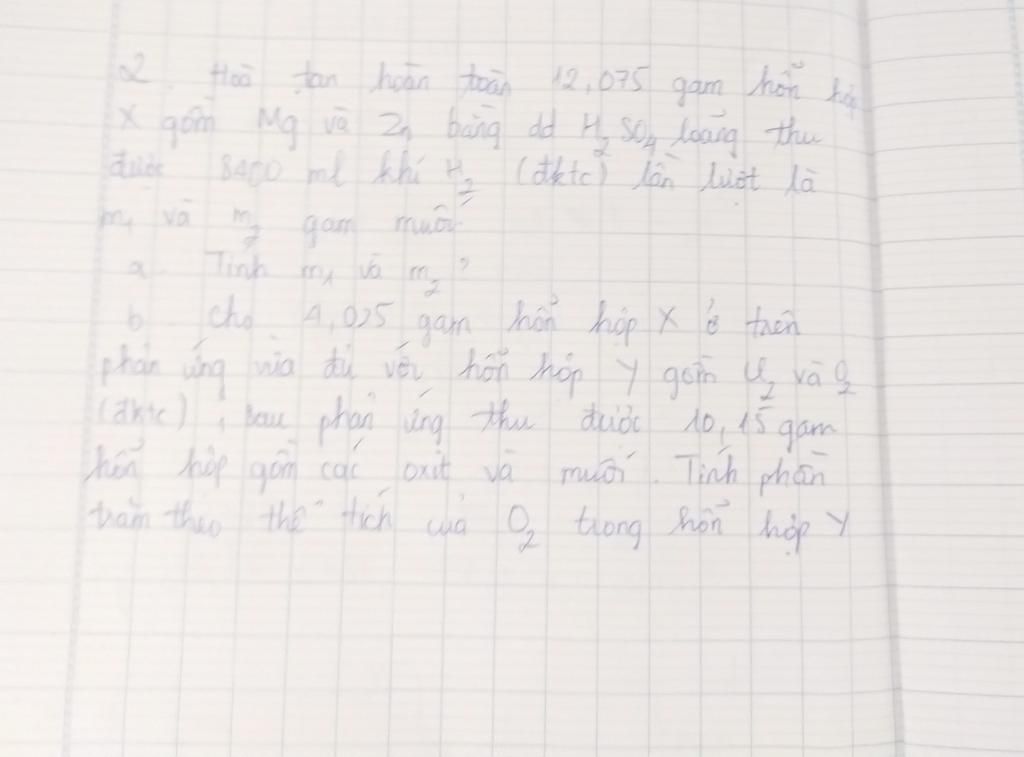 2. Hoà tan hoàn toàn 12,075 gam hỗn hợp
X gồm Mg và Zn bằng dd H2SO4 loãng thu
được 8400 ml khí H2 (đktc) lần lượt là
m1 và m2 gam muối.
a. Tính m1 và m2?
b. Cho 4,025 gam hỗn hợp X ở trên
phản ứng vừa đủ với hỗn hợp Y gồm Cl2 và O2
(đktc), sau phản ứng thu được 10,15 gam
hỗn hợp gồm các oxit và muối. Tính phần
trăm theo thể tích của O2 trong hỗn hợp Y